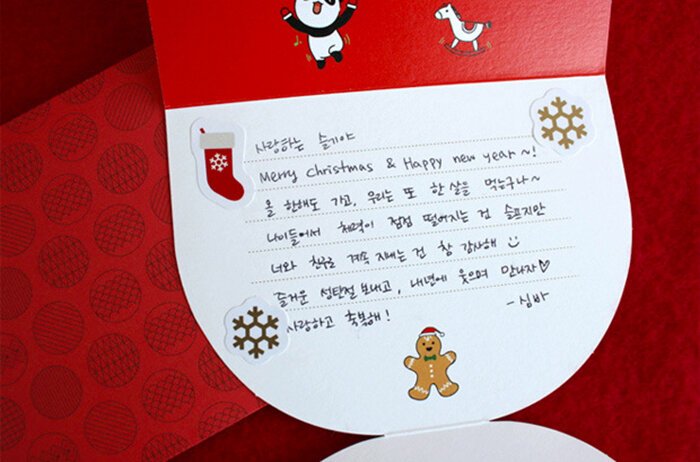 사랑하는 슬기야
Merry Christmas & Happy new year ~!
올 한해도 가고, 우리는 또 한 살을 먹는구나~
나이들어서 체력이 점점 떨어지는 건 슬프지만
너와 친구로 계속 지내는 건 참 감사해 :)
즐거운 성탄절 보내고, 내년에 웃으며 만나자♡
사랑하고 축복해!
- 심바